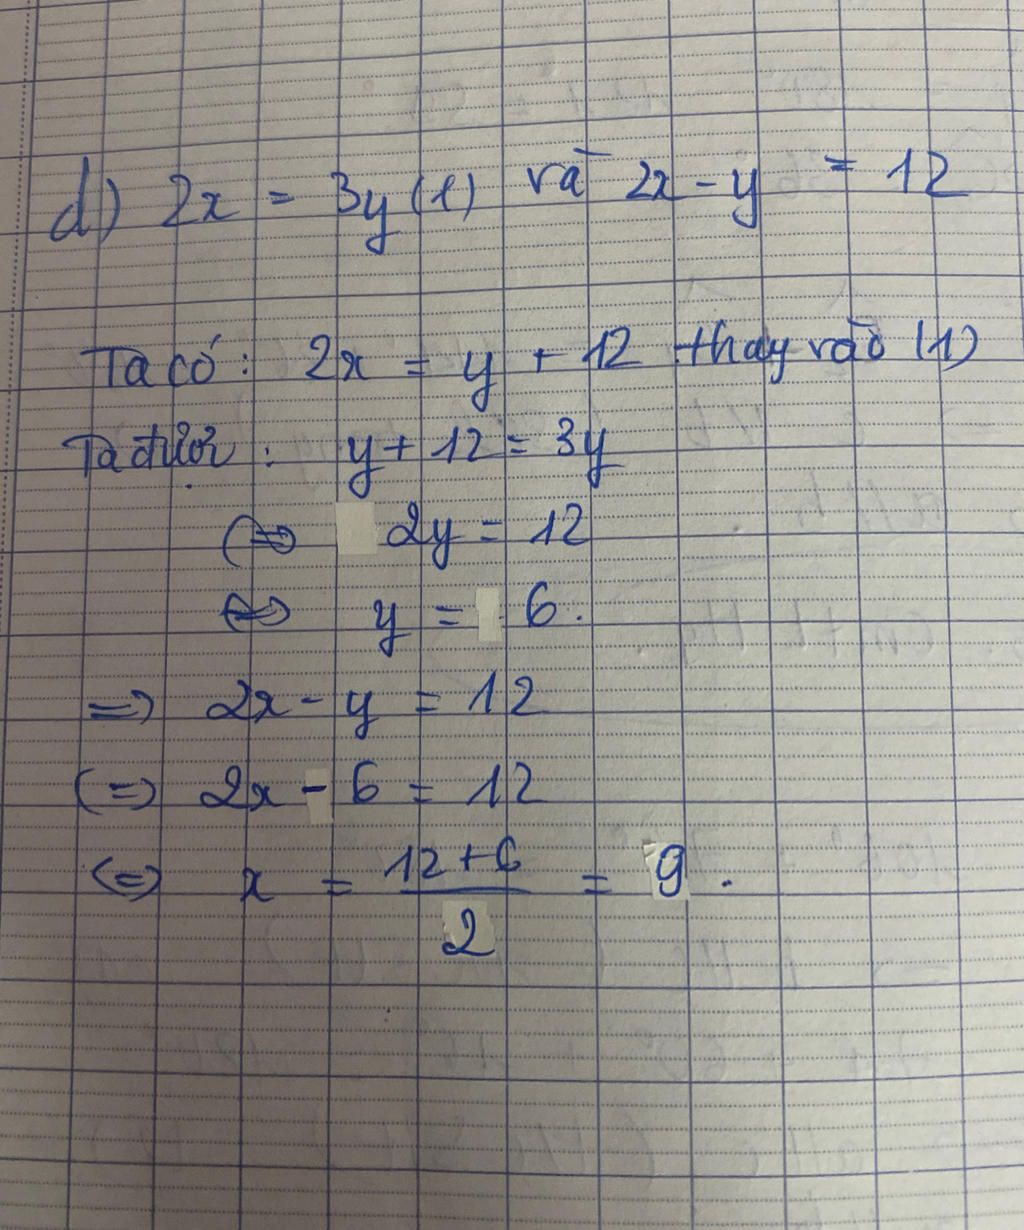 d) 2x = 3y (1) và 2x - y = 12
Ta có: 2x = y + 12 thay vào (1)
Ta được: y + 12 = 3y
(=> 2y = 12
<=> y = 6.
=> 2x - y = 12
(=> 2x - 6 = 12
<=> x = \frac{12+6}{2} = 9.